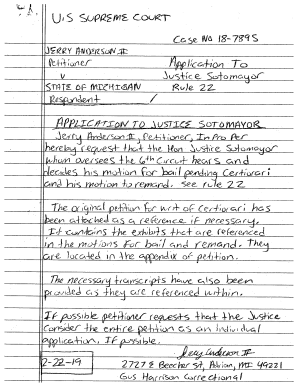 U.S SUPREME COURT
Case No 18-7895
JERRY ANDERSON II
Petitioner Application To
v Justice Sotomayor
STATE OF MICHIGAN Rule 22
Respondent /
APPLICATION TO JUSTICE SOTOMAYOR
Jerry Anderson II, Petitioner, In Pro Per
hereby request that the Hon Justice Sotomayor
whom oversees the 6th Circut hears and
decides his motion for bail pending Certiorari
and his motion to remand. see rule 22
The original petition for writ of Certiorari has
been attached as a reference if necessary.
It contains the exhibits that are referenced
in the motions for bail and remand. They
are located in the appendix of petition.
The necessary transcripts have also been
provided as they are referenced within.
If possible petitioner requests that the Justice
consider the entire petition as an individual
application. If possible.
Jerry Anderson II
2-22-19 2727 E Beecher St, Adrian, MI 49221
Gus Harrison Correctional